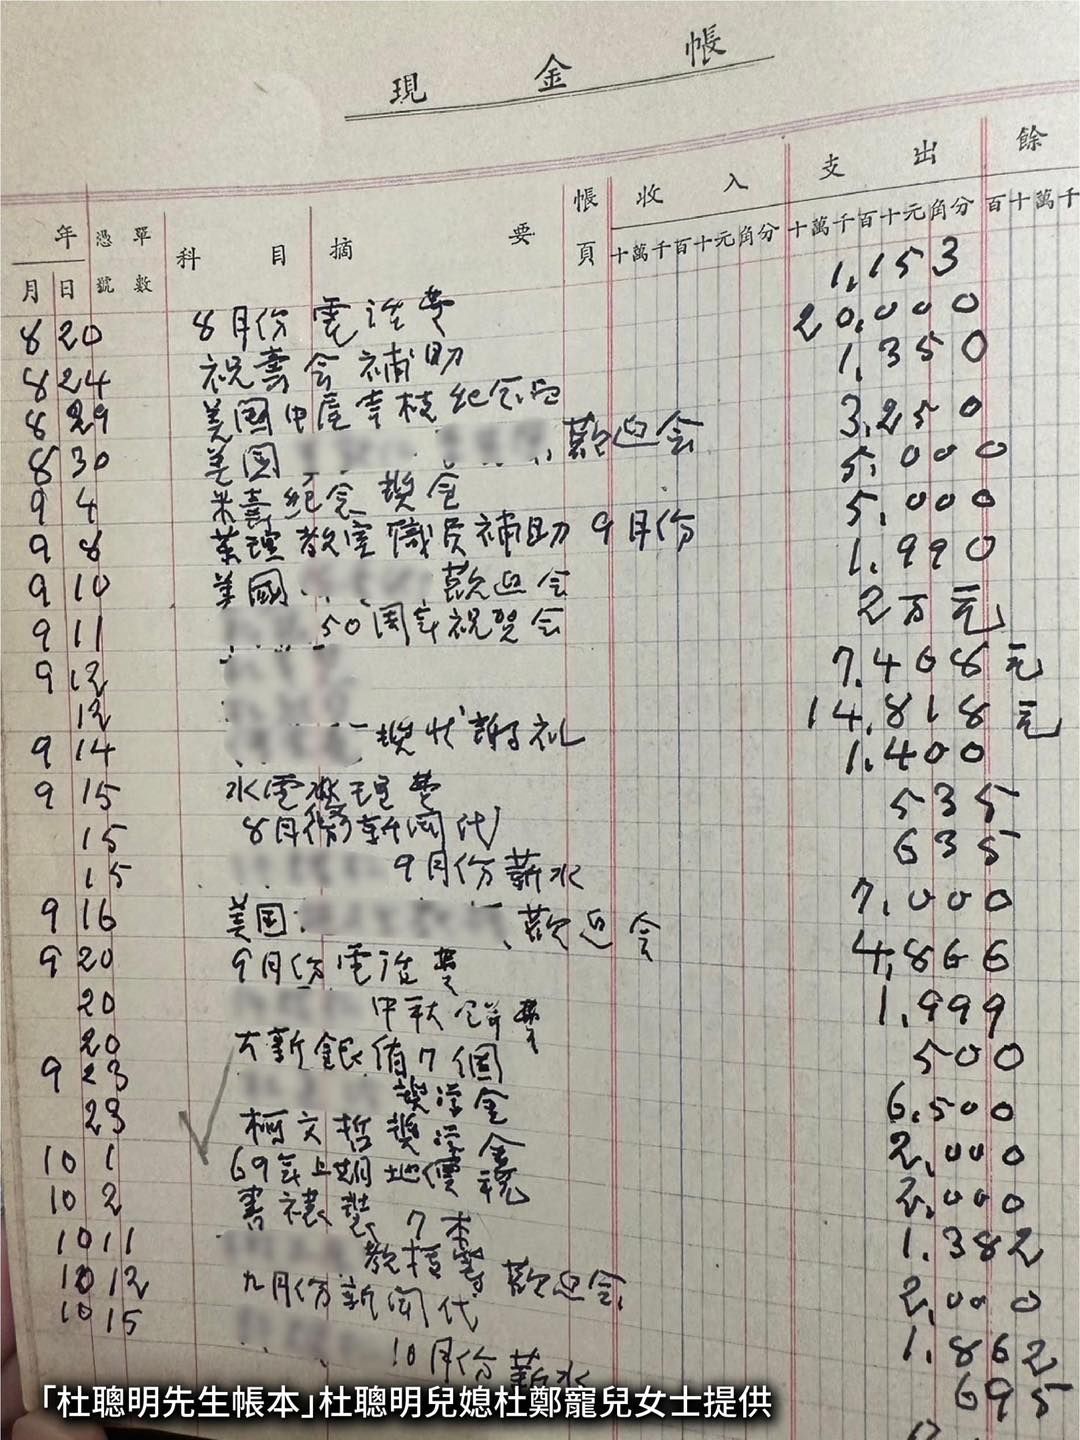 現金帳
年 憑單 科目 摘要 帳 收入 支出 餘
月 日 號數 頁 十萬千百十元角分 十萬千百十元角分 百十萬千
8 20 8月份電話費 1,153
8 24 祝壽会補助 20,000
8 29 美國中庭幸枝紀念品 1,350
8 30 美国 歡迎会 3,250
9 4 米壽紀念獎金 5,000
9 8 薬理教室職員補助 9月份 5,000
9 10 美國 歡迎会 1,990
9 11 50周年祝賀会 2万元
9 12 7,408元
12 14,818元
9 14 獎状謝礼 1,400
9 15 水電 理費 535
15 8月份新聞代 635
15 9月份薪水 7,000
9 16 美国 歡迎会 4,866
9 20 9月份電話費 1,999
20 中秋餅費 500
20 大新銀盾7個 6,500
9 23 獎学金 2,000
23 柯文哲獎学金 2,000
10 1 69年上期地價税 1,382
10 2 書裱裝 7本 2,000
10 11 教授等歡迎会 1,862
10 12 九月份新聞代 695
10 15 10月份薪水
「杜聰明先生帳本」杜聰明兒媳杜鄭寵兒女士提供